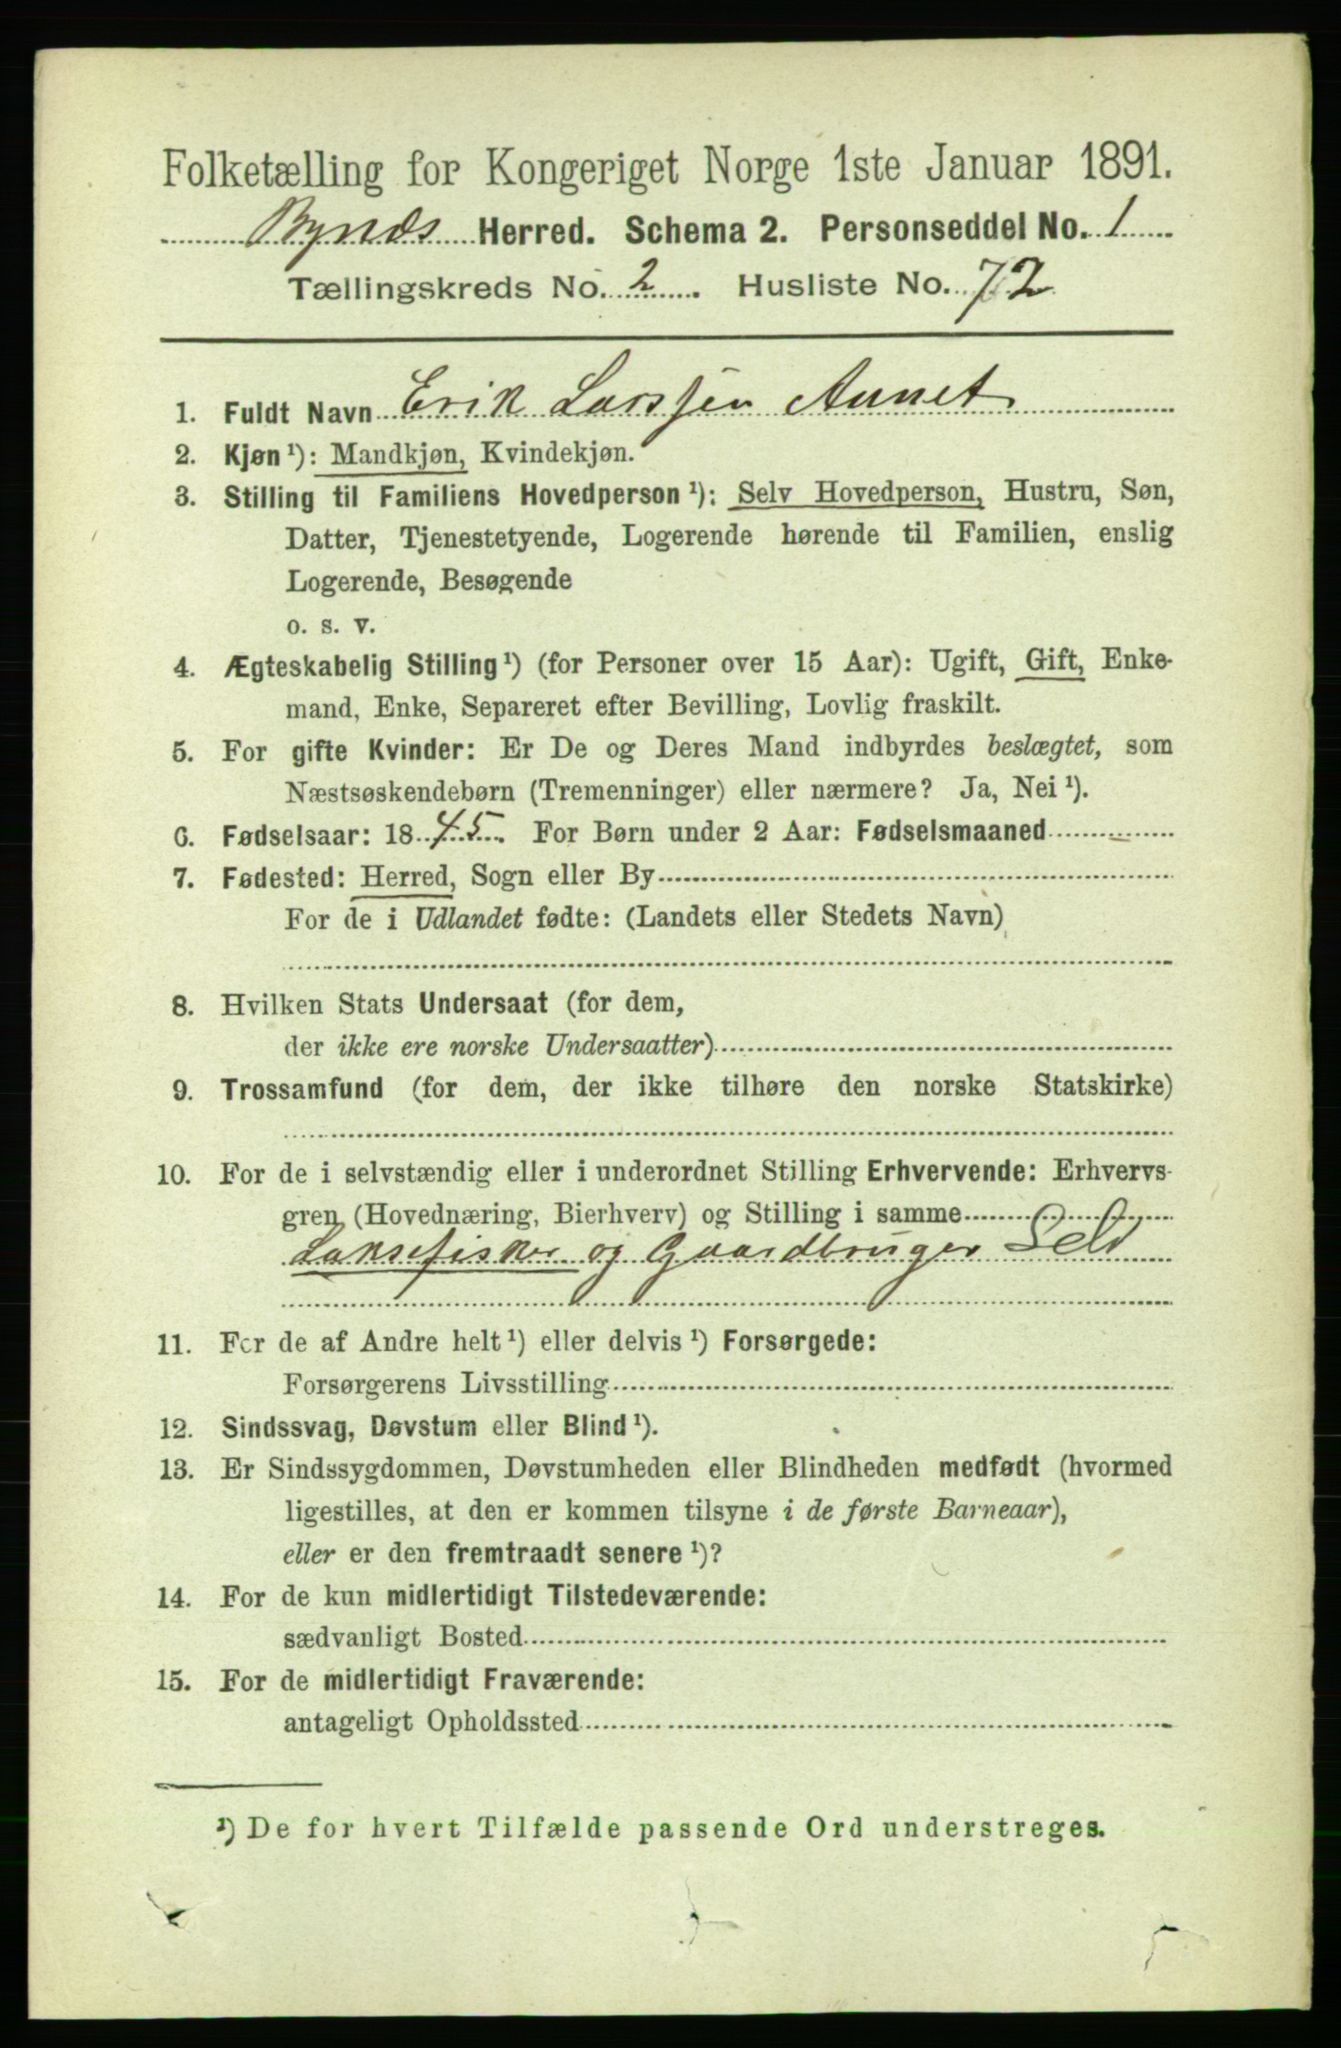 Folketælling for Kongeriget Norge 1ste Januar 1891.
Bynes Herred. Schema 2. Personseddel No. 1
Tællingskreds No. 2. Husliste No. 72
1. Fuldt Navn Erik Larssen Aunet
2. Kjøn ¹): Mandkjøn, Kvindekjøn.
3. Stilling til Familiens Hovedperson ¹): Selv Hovedperson, Hustru, Søn,
Datter, Tjenestetyende, Logerende hørende til Familien, enslig
Logerende, Besøgende
o. s. v.
4. Ægteskabelig Stilling ¹) (for Personer over 15 Aar): Ugift, Gift, Enke-
mand, Enke, Separeret efter Bevilling, Lovlig fraskilt.
5. For gifte Kvinder: Er De og Deres Mand indbyrdes beslægtet, som
Næstsøskendebørn (Tremenninger) eller nærmere? Ja, Nei ¹).
6. Fødselsaar: 1845. For Børn under 2 Aar: Fødselsmaaned
7. Fødested: Herred, Sogn eller By
For de i Udlandet fødte: (Landets eller Stedets Navn)
8. Hvilken Stats Undersaat (for dem,
der ikke ere norske Undersaatter)
9. Trossamfund (for dem, der ikke tilhøre den norske Statskirke)
10. For de i selvstændig eller i underordnet Stilling Erhvervende: Erhvervs-
gren (Hovednæring, Bierhverv) og Stilling i samme
Laksefisker og Gaardbruger Selv
11. For de af Andre helt ¹) eller delvis ¹) Forsørgede:
Forsørgerens Livsstilling
12. Sindssvag, Døvstum eller Blind ¹).
13. Er Sindssygdommen, Døvstumheden eller Blindheden medfødt (hvormed
ligestilles, at den er kommen tilsyne i de første Barneaar),
eller er den fremtraadt senere ¹)?
14. For de kun midlertidigt Tilstedeværende:
sædvanligt Bosted
15. For de midlertidigt Fraværende:
antageligt Opholdssted
¹) De for hvert Tilfælde passende Ord understreges.